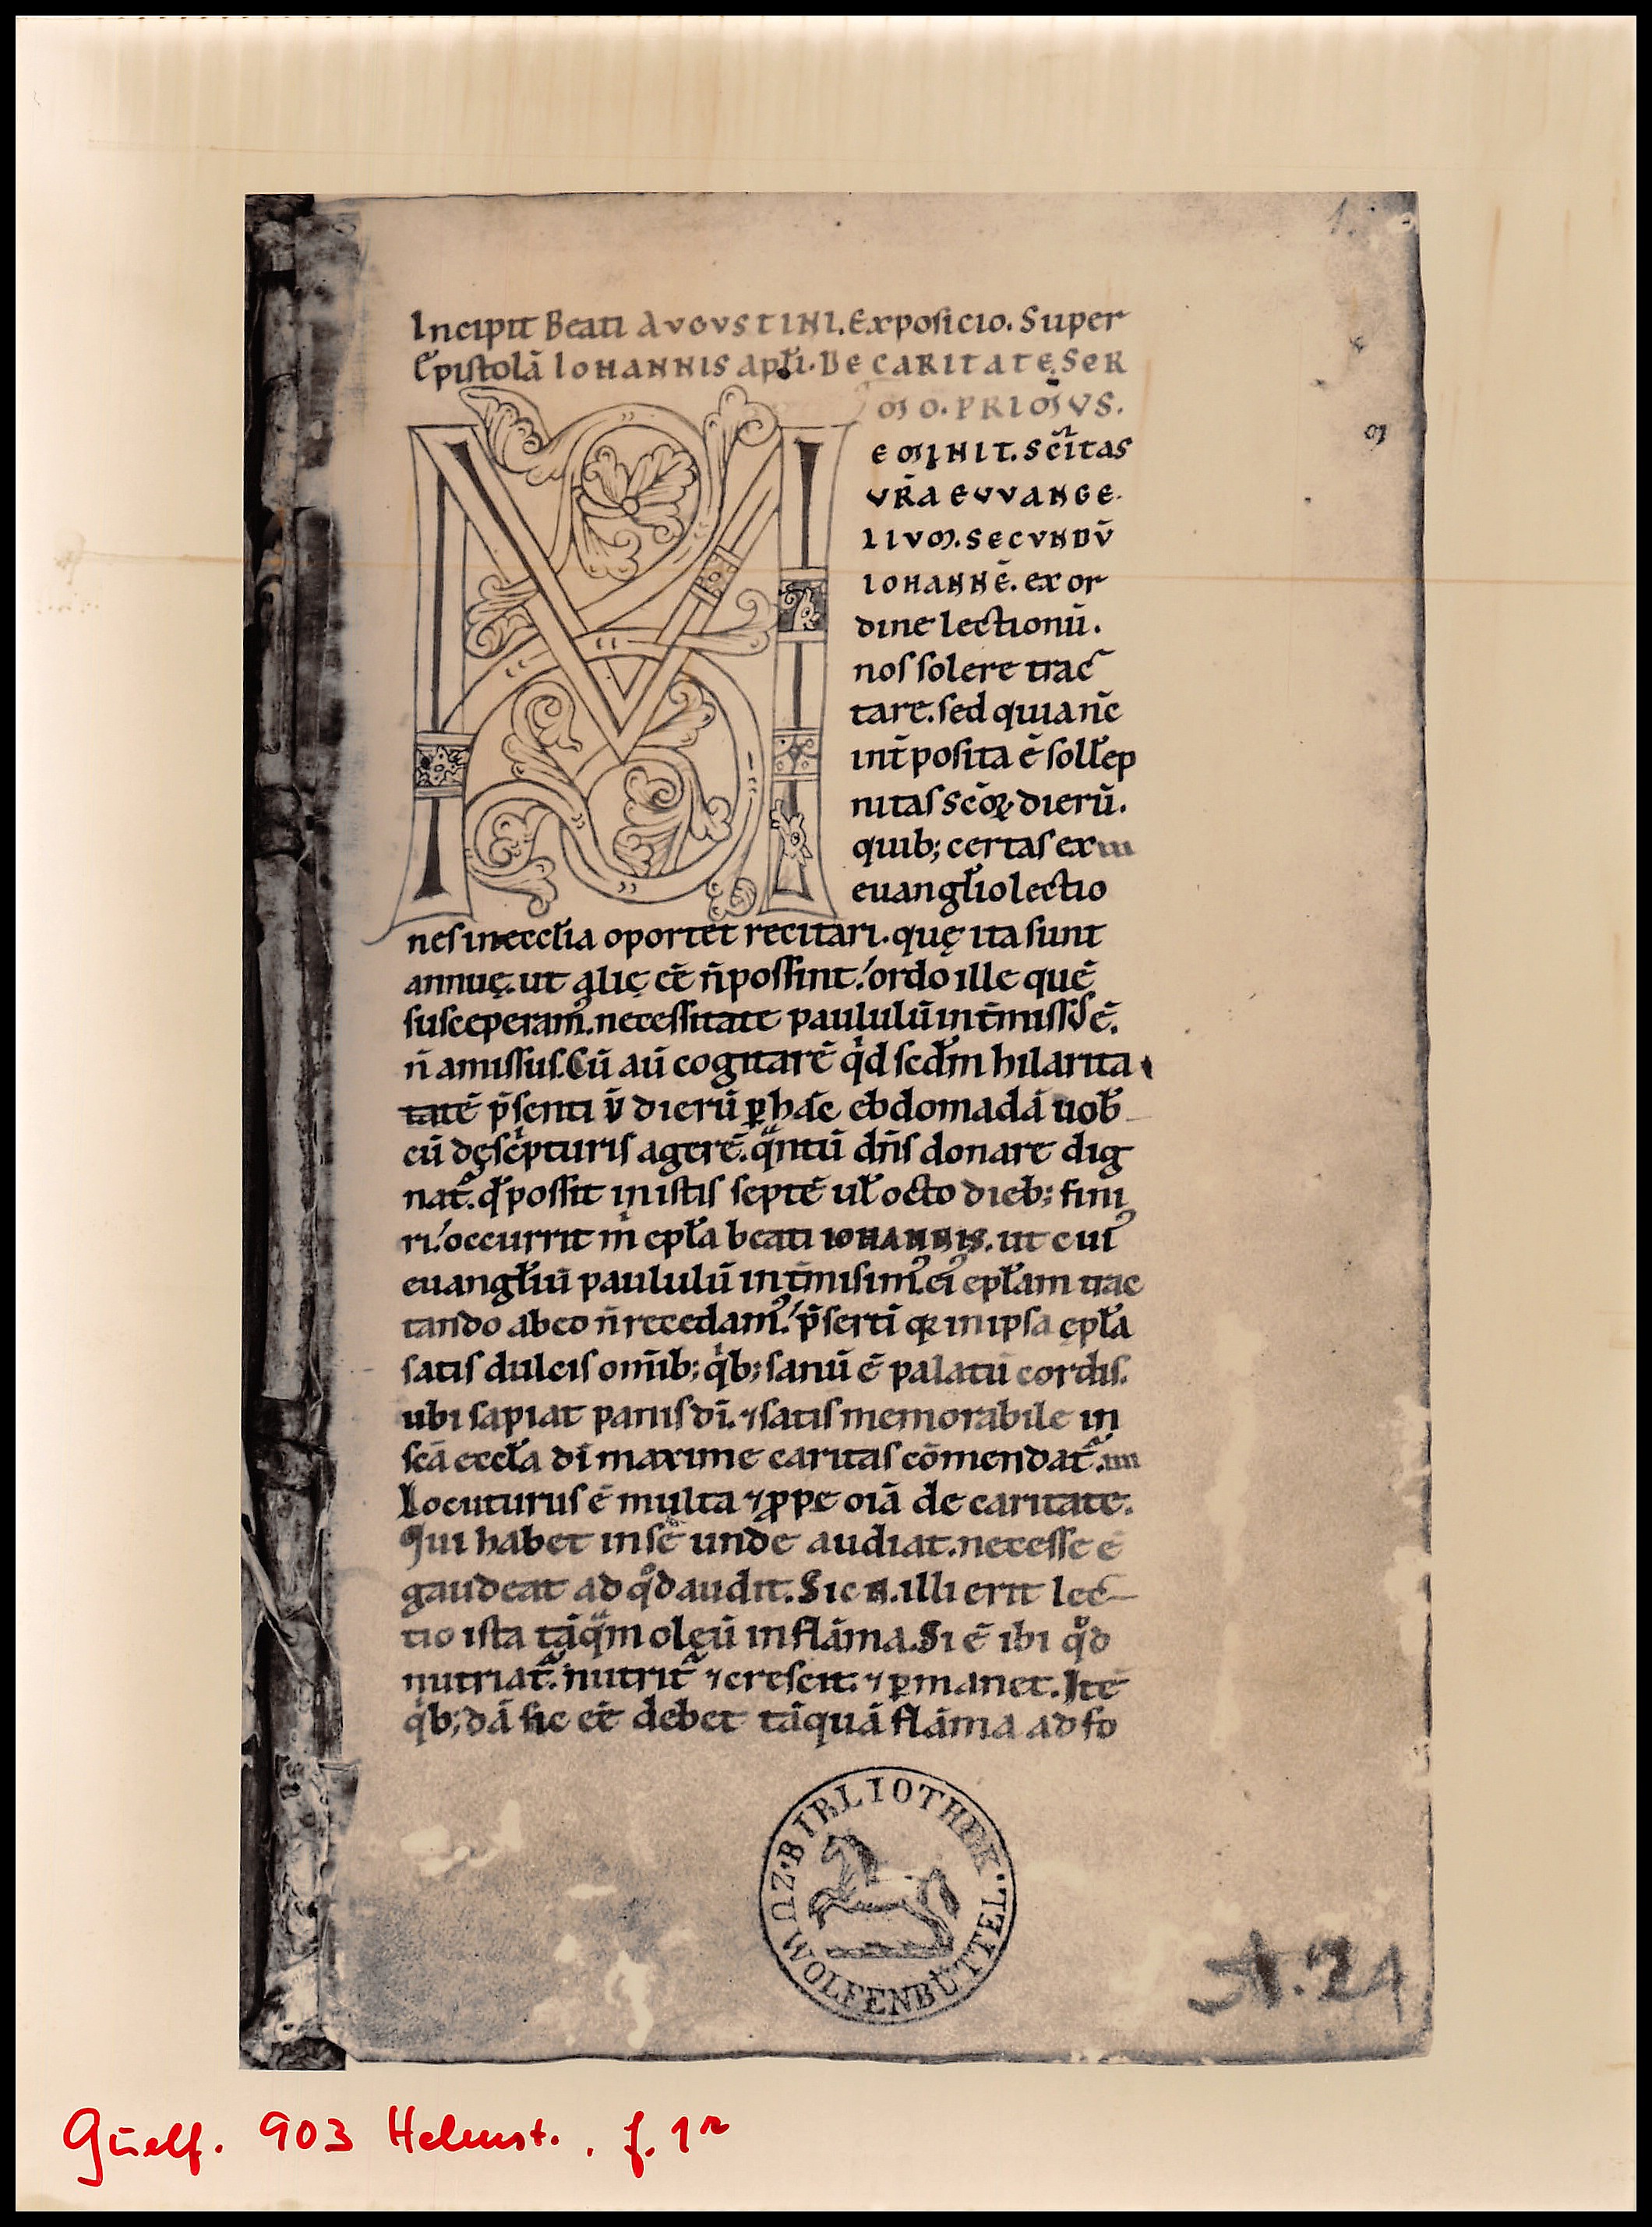 1.
Incipit Beati AVGVSTINI. Exposicio. Super
Ep̄istolā IOHANNIS apłi. DE CARITATE. SER
MO. PRIMVS.
M
EMINIT. Sc̄itas
VR̄A EVVANGE
LIVM. SECVNDV̄
IOHANNĒ. ex or
dine lectionū.
nos solere trac
tare. sed quia nc̄
int̄posita ē sollēp
nitas sc̄oꝝ dierū.
quib; certas ex
euangłio lectio
nes in eccłia oportet recitari. quę ita sunt
annuę. ut alię eē n̄ possint. ordo ille quē
susceperam᾽. necessitate paululū int̄missus ē.
n̄ amissus. Cū aū cogitarē qd scd̄m hilarita
tatē p̄senti v̄ dierū ꝑ hāc ebdomadā uob̄
cū dę sc̄pturis agerē. qntū dn̄s donare dig
nat᷑. qđ possit in istis septē uł octo dieb; fini
ri. occurrit m̄ epła beati IOHANNIS. ut cui᾽
euangłiū paululū int̄misim᾽. ei᾽ epłam trac
tando ab eo n̄ recedam᾽. p̄serti qꝛ in ipsa epła
satis dulcis omīb; qb; sanū ē palatū cordis.
ubi sapiat panis dī. ⁊ satis memorabile in
scā eccła dī maxime caritas cōmendat᷑.
Locuturus ē multa ⁊ ꝓpe oīā de caritate.
Qui habet in se unde audiat. necesse ē
gaudeat ad qd audit. Sic n. illi erit lec
tio ista tāqm oleū in flāma. Si ē ibi qd
nutriat᷑. nutrit᷑ ⁊ crescit. ⁊ ꝑmanet. Itē
qb;dā sic eē debet tāquā flāma ad fo
BIBLIOTHEK · WOLFENBÜTTEL · ZU ·
A. 24
Guelf. 903 Helmst. . f. 1r